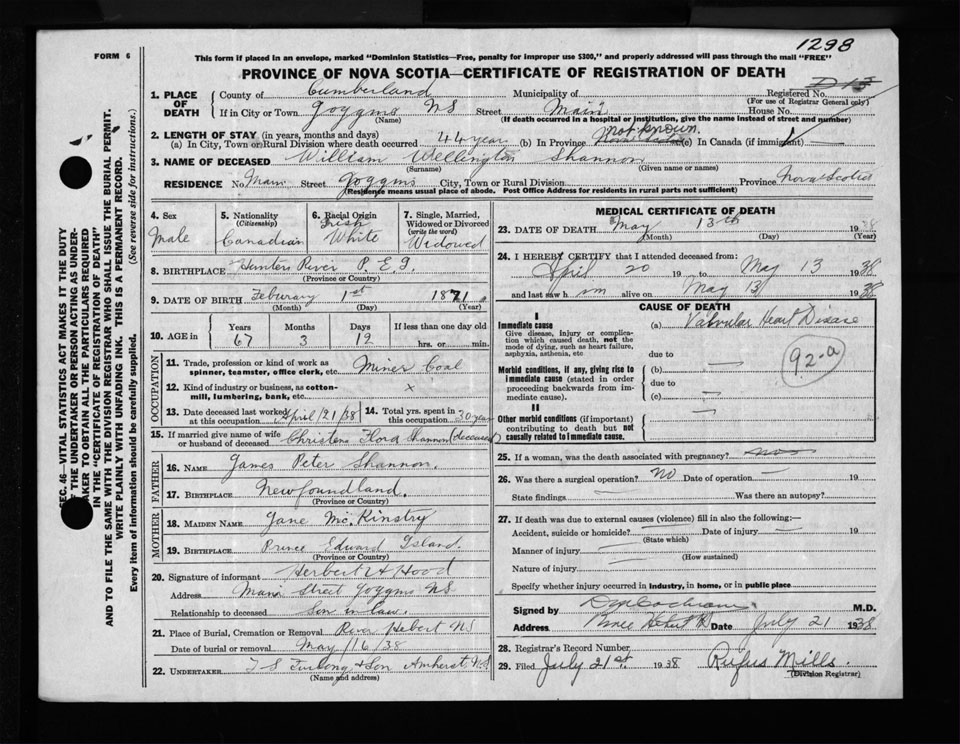 1298
FORM 6
This form if placed in an envelope, marked "Dominion Statistics—Free, penalty for improper use $300," and properly addressed will pass through the mail "FREE"
PROVINCE OF NOVA SCOTIA—CERTIFICATE OF REGISTRATION OF DEATH
SEC. 46—VITAL STATISTICS ACT MAKES IT THE DUTY
OF THE UNDERTAKER OR PERSON ACTING AS UNDER-
TAKER TO OBTAIN ALL THE PARTICULARS REQUIRED
IN THE "CERTIFICATE OF REGISTRATION OF DEATH"
AND TO FILE THE SAME WITH THE DIVISION REGISTRAR WHO SHALL ISSUE THE BURIAL PERMIT.
WRITE PLAINLY WITH UNFADING INK. THIS IS A PERMANENT RECORD.
Every item of information should be carefully supplied. (See reverse side for instructions.)
1. PLACE OF DEATH County of Cumberland Municipality of Registered No.
(For use of Registrar General only)
If in City or Town Joggins NS Street Main House No.
(Name) (If death occurred in a hospital or institution, give the name instead of street and number)
2. LENGTH OF STAY (in years, months and days) not known.
(a) In City, Town or Rural Division where death occurred 44 year (b) In Province Nova Scotia (c) In Canada (if immigrant)
3. NAME OF DECEASED William Wellington Shannon
(Surname) (Given name or names)
RESIDENCE No. Main Street Joggins City, Town or Rural Division Province Nova Scotia
(Residence means usual place of abode. Post Office Address for residents in rural parts not sufficient)
4. Sex 5. Nationality (Citizenship) 6. Racial Origin 7. Single, Married, Widowed or Divorced (write the word)
Male Canadian Irish White Widowed
8. BIRTHPLACE Hunters River P.E.I.
(Province or Country)
9. DATE OF BIRTH Feburary 1st 1871
(Month) (Day) (Year)
10. AGE in Years Months Days If less than one day old
67 3 12 hrs. or min.
OCCUPATION
11. Trade, profession or kind of work as spinner, teamster, office clerk, etc. Miner Coal
12. Kind of industry or business, as cotton-mill, lumbering, bank, etc. x
13. Date deceased last worked at this occupation April/21/38 14. Total yrs. spent in this occupation 30 year
15. If married give name of wife or husband of deceased Christena Flora Shannon (deceased)
FATHER
16. NAME James Peter Shannon.
17. BIRTHPLACE Newfoundland.
(Province or Country)
MOTHER
18. MAIDEN NAME Jane McKinstry
19. BIRTHPLACE Prince Edward Island.
(Province or Country)
20. Signature of informant Herbert H Hood
Address Main Street Joggins NS
Relationship to deceased Son in law.
21. Place of Burial, Cremation or Removal River Hebert NS
Date of burial or removal May/16/38
22. UNDERTAKER T S Furlong & Son Amherst NS
(Name and address)
MEDICAL CERTIFICATE OF DEATH
23. DATE OF DEATH May 13th 1938
(Month) (Day) (Year)
24. I HEREBY CERTIFY that I attended deceased from:
April 20 19 to May 13 1938
and last saw him alive on May 13 1938
CAUSE OF DEATH
I
Immediate cause (a) Valvular Heart Disease
Give disease, injury or complica-
tion which caused death, not the
mode of dying, such as heart failure,
asphyxia, asthenia, etc
due to
92-a
Morbid conditions, if any, giving rise to
immediate cause (stated in order
proceeding backwards from im-
mediate cause).
(b)
due to
(c)
II
Other morbid conditions (if important)
contributing to death but not
causally related to immediate cause.
25. If a woman, was the death associated with pregnancy?
26. Was there a surgical operation? No Date of operation 19
State findings Was there an autopsy?
27. If death was due to external causes (violence) fill in also the following:—
Accident, suicide or homicide? Date of injury 19
(State which)
Manner of injury
(How sustained)
Nature of injury
Specify whether injury occurred in industry, in home, or in public place
Signed by Cochrane M.D.
Address River Hebert Date July 21 1938
28. Registrar's Record Number
29. Filed July 21st 1938 Rufus Mills.
(Division Registrar)